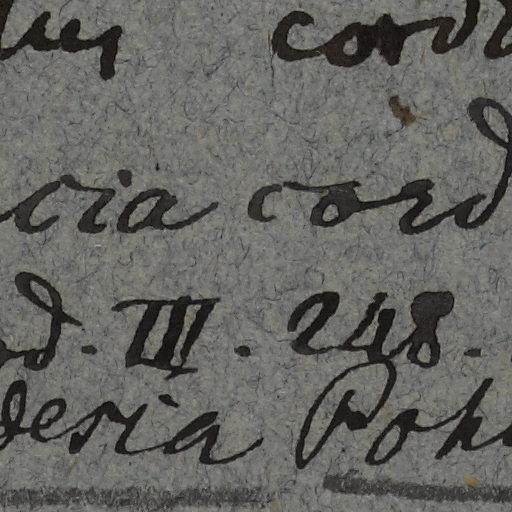 cord
cia cord
od. III. 248.
deria Poh